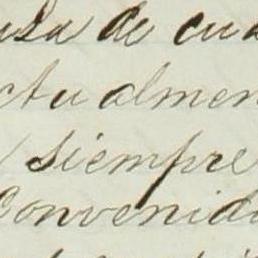 usa de cua
ctualmen
siempre
Convenid